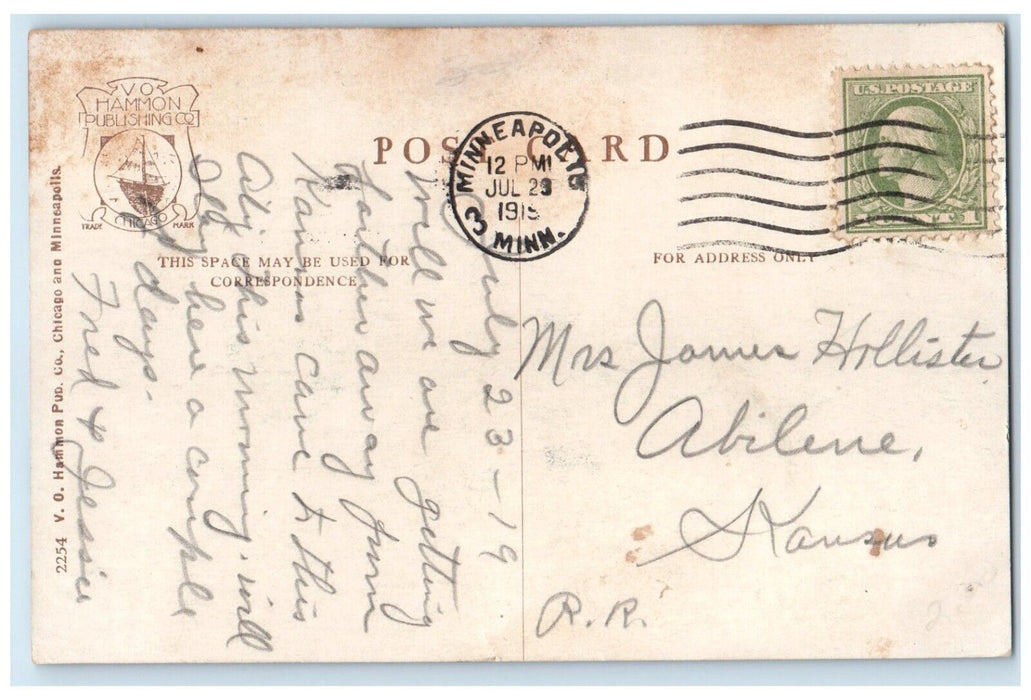 V O
HAMMON
PUBLISHING CO
CHICAGO
TRADE MARK
POST CARD
MINNEAPOLIS
12 PM
JUL 23
1919
3 MINN.
U.S. POSTAGE
1 CENT 1
THIS SPACE MAY BE USED FOR
CORRESPONDENCE
FOR ADDRESS ONLY
2254 V. O. Hammon Pub. Co., Chicago and Minneapolis.
July 23-19
Well we are getting
farther away from
Kans came to this
city this morning. will
stay here a couple
days.
Fred & Jessie
Mrs James Hollister
Abilene,
Kansas
R.R.